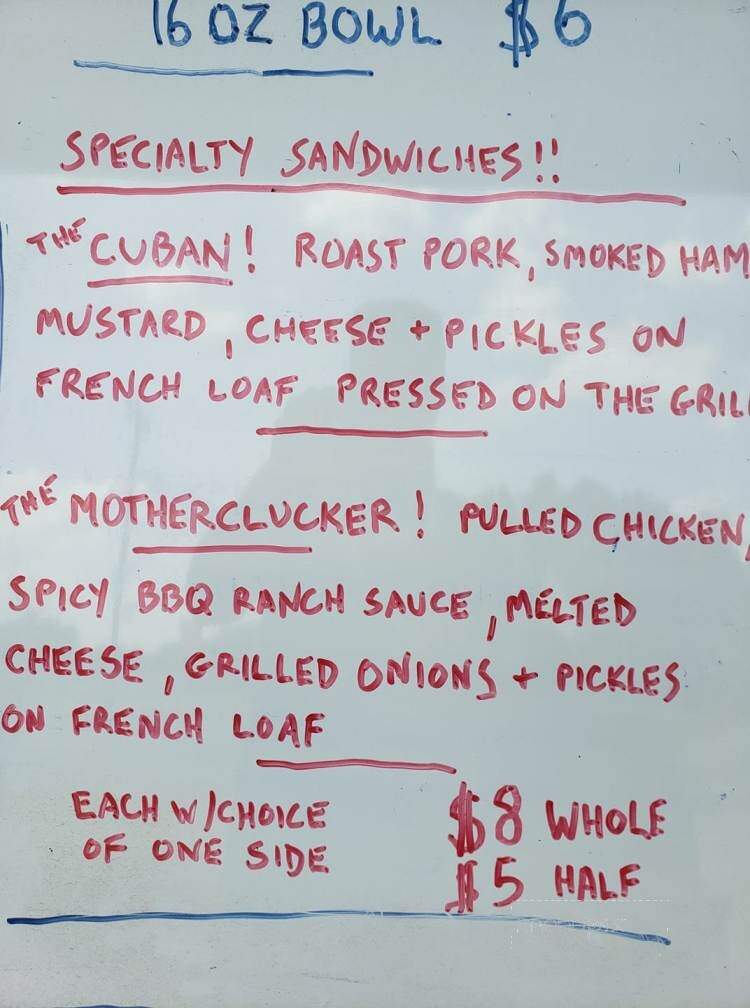 16 OZ BOWL $6
SPECIALTY SANDWICHES!!
THE CUBAN! ROAST PORK, SMOKED HAM
MUSTARD, CHEESE + PICKLES ON
FRENCH LOAF PRESSED ON THE GRIL
THE MOTHERCLUCKER! PULLED CHICKEN,
SPICY BBQ RANCH SAUCE, MELTED
CHEESE, GRILLED ONIONS + PICKLES
ON FRENCH LOAF
EACH W/CHOICE $8 WHOLE
OF ONE SIDE $5 HALF